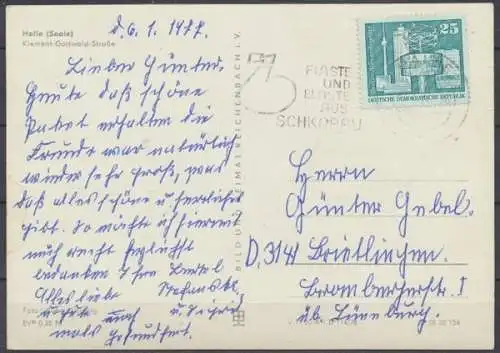 Halle (Saale)
Klement-Gottwald-Straße
d. 6. 1. 1977
Lieber Günter.
Heute daß schöne
Paket erhalten die
Freude war natürlich
wieder sehr groß, was
daß alles schöne u herrliches
gibt. So möchte ich hiermit
mich recht herzlichst
bedanken
Alles liebe
mals Gesundheit.
BILD UND HEIMAT REICHENBACH I. V.
PLASTE
UND
ELASTE
AUS
SCHKOPAU
25
DEUTSCHE DEMOKRATISCHE REPUBLIK
Herrn
Günter Gebel.
D. 3141 Brietlingen.
Brombeerstr. 1
üb. Lüneburg.